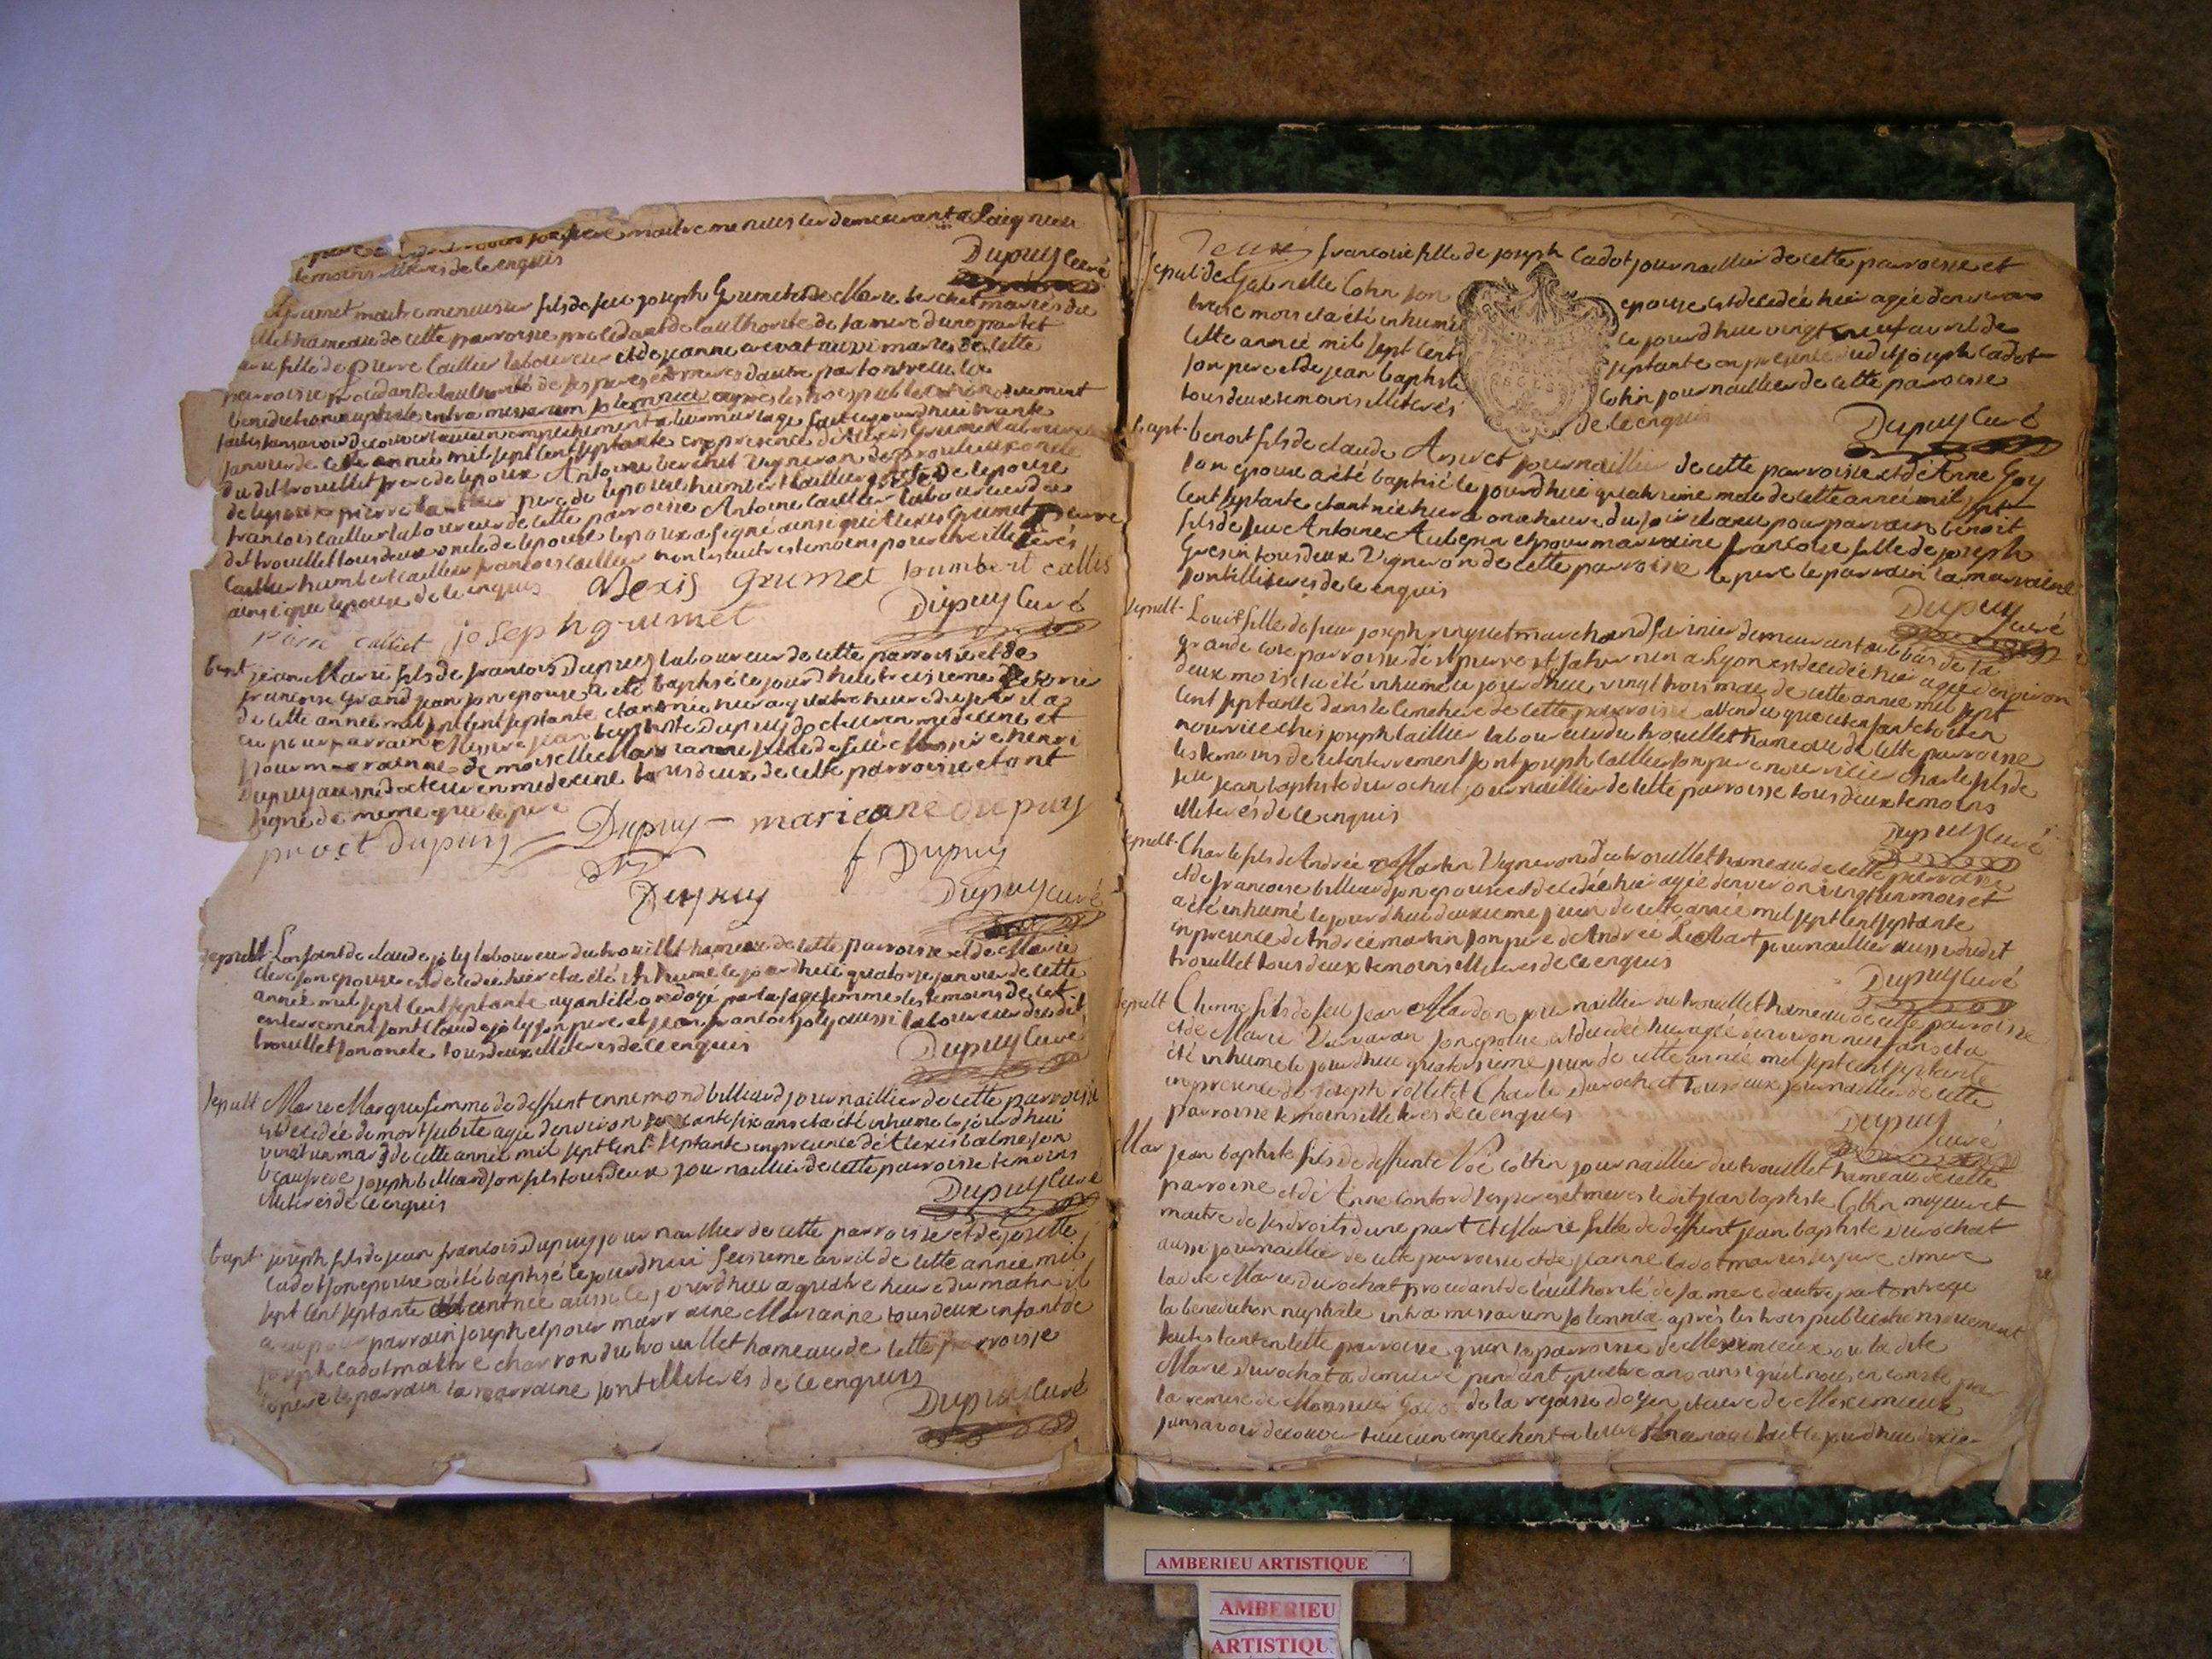 maitre menuisier demeurant a Laignieu
temoins illiterés de ce enquis
Dupuy curé
Grumet maitre menuisier fils de feu joseph Grumet et de Marie berchet mariés du
dit hameau de cette parroisse procedant de lauthorité de sa mere dune part et
fille de pierre caillier laboureur et de jeanne crevat aussi mariés de cette
parroisse procedant de lauthorité de ses peres et meres dautre part ont receu la
benediction nuptiale intra missarum solemnia apres les trois publications duement
faites sans avoir decouvert aucun empechement a leur mariage fait ce jourdhui trante
janvier de cette année mil sept cent septante en presence de Alexis Grumet laboureur
du dit trouillet frere de lepoux Antoine berchet vigneron de
de lepoux pierre caillier pere de lepouse humbert caillier de lepouse
francois caillier laboureur de cette parroisse Antoine caillier laboureur du
dit trouillet tous deux oncle de lepouse lepoux a signé ainsi que Alexis Grumet pierre
caillier humbert caillier francois caillier non les autres temoins pour etre illiterés
ainsi que lepouse de ce enquis alexis grumet humbert callies
Dupuy curé
piere calliet joseph grumet
bapt jean Marie fils de francois Dupuy laboureur de cette parroisse et de
francoise Grand jean son epouse a eté baptisé ce jourdhui treisieme
de cette année mil sept cent septante etant né hier a quatre heure du soir il a
eu pour parrain Messire jean baptiste Dupuy docteur en medecine et
pour marrainne demoiselle Marianne fille de feu Messire henri
Dupuy aussi docteur en medecine tous deux de cette parroisse et ont
signé de meme que le pere
Dupuy – Dupuy – marieane dupuy
f Dupuy
Dupuy
Dupuy curé
sepult Lonfant de claude joly laboureur du trouillet hameau de cette parroisse et de Marie
clerc son epouse est decedé hier et a eté inhumé ce jourdhui quatorze janvier de cette
année mil sept cent septante ayant eté ondoyé par la sage femme les temoins de cet
enterrement sont claude joly son pere et jean francois joly aussi laboureur du dit
trouillet son oncle tous deux illiteres de ce enquis
Dupuy curé
sepult Marie Marque femme de deffunt ennemond billiard journaillier de cette parroisse
est decedée de mort subite agée denviron soixante six ans et a eté inhumé ce jourdhui
vingt un mars de cette année mil sept cent septante en presence de Alexis balme son
beaufrere joseph billiard son fils tous deux journaillier de cette parroisse temoins
illiterés de ce enquis
Dupuy curé
bapt joseph fils de jean francois Dupuy journaillier de cette parroisse et de josette
Cadot son epouse a eté baptisé ce jourdhui seisieme avril de cette année mil
sept cent septante etant né aussi ce jourdhui a quatre heure du matin il
a eu pour parrain joseph et pour marraine Marianne tous deux enfant de
joseph cadot maitre charron du trouillet hameau de cette parroisse
le pere le parrain la marraine sont illiterés de ce enquis
Dupuy curé
Deux
francoise fille de joseph Cadot journaillier de cette parroisse et
sepult de Gabrielle Cohn son epouse est decedée hier agée denviron
treise mois et a été inhumé ce jourdhui vingt neuf avril de
cette année mil sept cent septante en presence dudit joseph Cadot
son pere et de jean baptiste Cohn journaillier de cette parroisse
tous deux temoins illiterés de ce enquis
Dupuy Curé
bapt. benoit fils de claude journaillier de cette parroisse et de Anne Goy
son epouse a eté baptisé ce jourdhui quatrieme mai de cette année mil sept
cent septante etant né hier a onze heure du soir il a eu pour parrain benoit
fils de feu Antoine Aubepin et pour marraine francoise fille de joseph
Gresin tous deux Vigneron de cette parroisse le pere le parrain la marraine
sont illiterés de ce enquis
Dupuy curé
sepult. Louise fille de sieur joseph marchand farinier demeurant au bas de la
grande cote parroisse de st pierre st saturnin a Lyon est decedée hier agée denviron
deux mois et a eté inhumé ce jourdhui vingt trois mai de cette année mil sept
cent septante dans le cimetiere de cette parroisse attendu que cet enfant etoit en
nourrice ches joseph caillier laboureur du trouillet hameau de cette parroisse
les temoins de cet enterrement sont joseph caillier son pere nourricier charle fils de
feu jean baptiste durochat journaillier de cette parroisse tous deux temoins
illiterés de ce enquis
Dupuy curé
sepult. Charle fils de Andrée Martin Vigneron du trouillet hameau de cette parroisse
et de francoise billiard son epouse est decedée hier agée denviron vingt un mois et
a eté inhumé ce jourdhui deuxieme juin de cette année mil sept cent septante
en presence de Andrée martin son pere de Andrée journaillier aussi dudit
trouillet tous deux temoins illiteres de ce enquis
Dupuy curé
sepult fils de feu jean Mardon journaillier du trouillet hameau de cette parroisse
et de Marie son epouse est decedée hier agée denviron neuf ans et a
été inhumé ce jourdhui quatorsieme juin de cette année mil sept cent septante
en presence de joseph rollet et Charle Durochat tous deux journaillier de cette
parroisse temoins illiterés de ce enquis
Dupuy curé
Mar jean baptiste fils de deffunte cothin journaillier du trouillet hameau de cette
parroisse et de Anne ses pere et mere le dit jean baptiste Cothin majeur et
maitre de ses droits dune part et Marie fille de deffunt jean baptiste Durochat
aussi journaillier de cette parroisse et de jeanne cadot mariés ses pere et mere
la dite Marie Durochat procedant de lauthorité de sa mere dautre part ont receu
la benediction nuptiale intra missarum solemnia apres les trois publications duement
faites tant en cette parroisse quen la parroisse de Meximieux ou la dite
Marie Durochat a demeuré pendant quatre ans ainsi quil nous en conste par
la remise de Monsieur de la doyen et curé de Meximieux
sans avoir decouvert aucun empechement a leur Mariage fait ce jourdhui
AMBERIEU ARTISTIQUE
AMBERIEU
ARTISTIQU